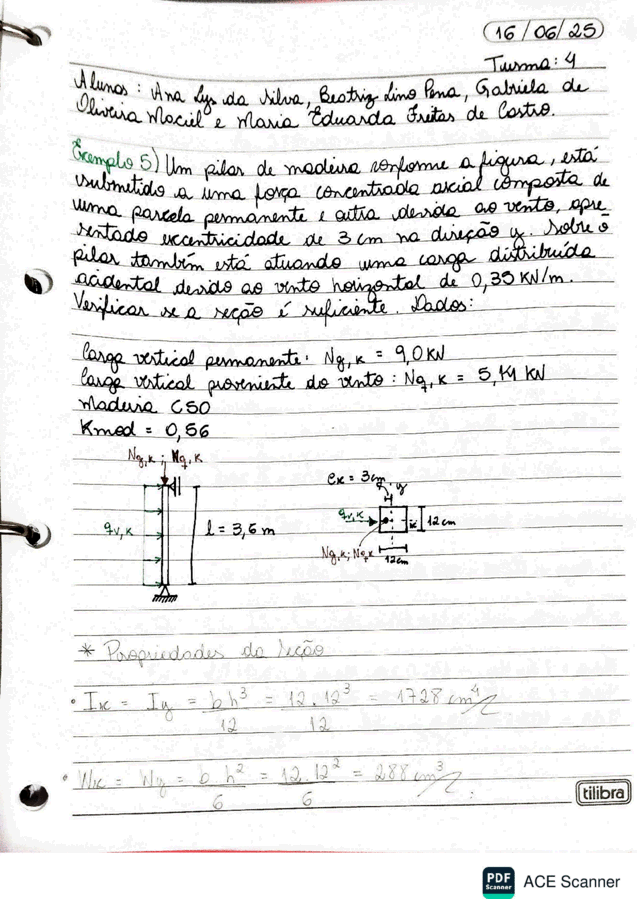 16/06/25
Turma: 4
Alunas: Ana Lys da Silva, Beatriz Lino Pena, Gabriela de
Oliveira Maciel e Maria Eduarda Freitas de Castro.
Exemplo 5) Um pilar de madeira conforme a figura, está
submetido a uma força concentrada axial composta de
uma parcela permanente e outra devida ao vento, apre
sentado excentricidade de 3 cm na direção y. Sobre o
pilar também está atuando uma carga distribuída
acidental devido ao vento horizontal de 0,35 KN/m.
Verificar se a seção é suficiente. Dados:
Carga vertical permanente: Ng,k = 9,0 KN
Carga vertical proveniente do vento: Nq,k = 5,14 KN
Madeira C50
Kmod = 0,56
Ng,k ; Nq,k
qv,k
l = 3,6 m
ex = 3cm
y
qv,k
x
12 cm
Ng,k; Nq,k
12cm
* Propriedades da seção
• Ix = Iy = b h³/12 = 12 . 12³/12 = 1728 cm⁴//
• Wx = Wy = b h²/6 = 12 . 12²/6 = 288 cm³//
tilibra
PDF
Scanner
ACE Scanner